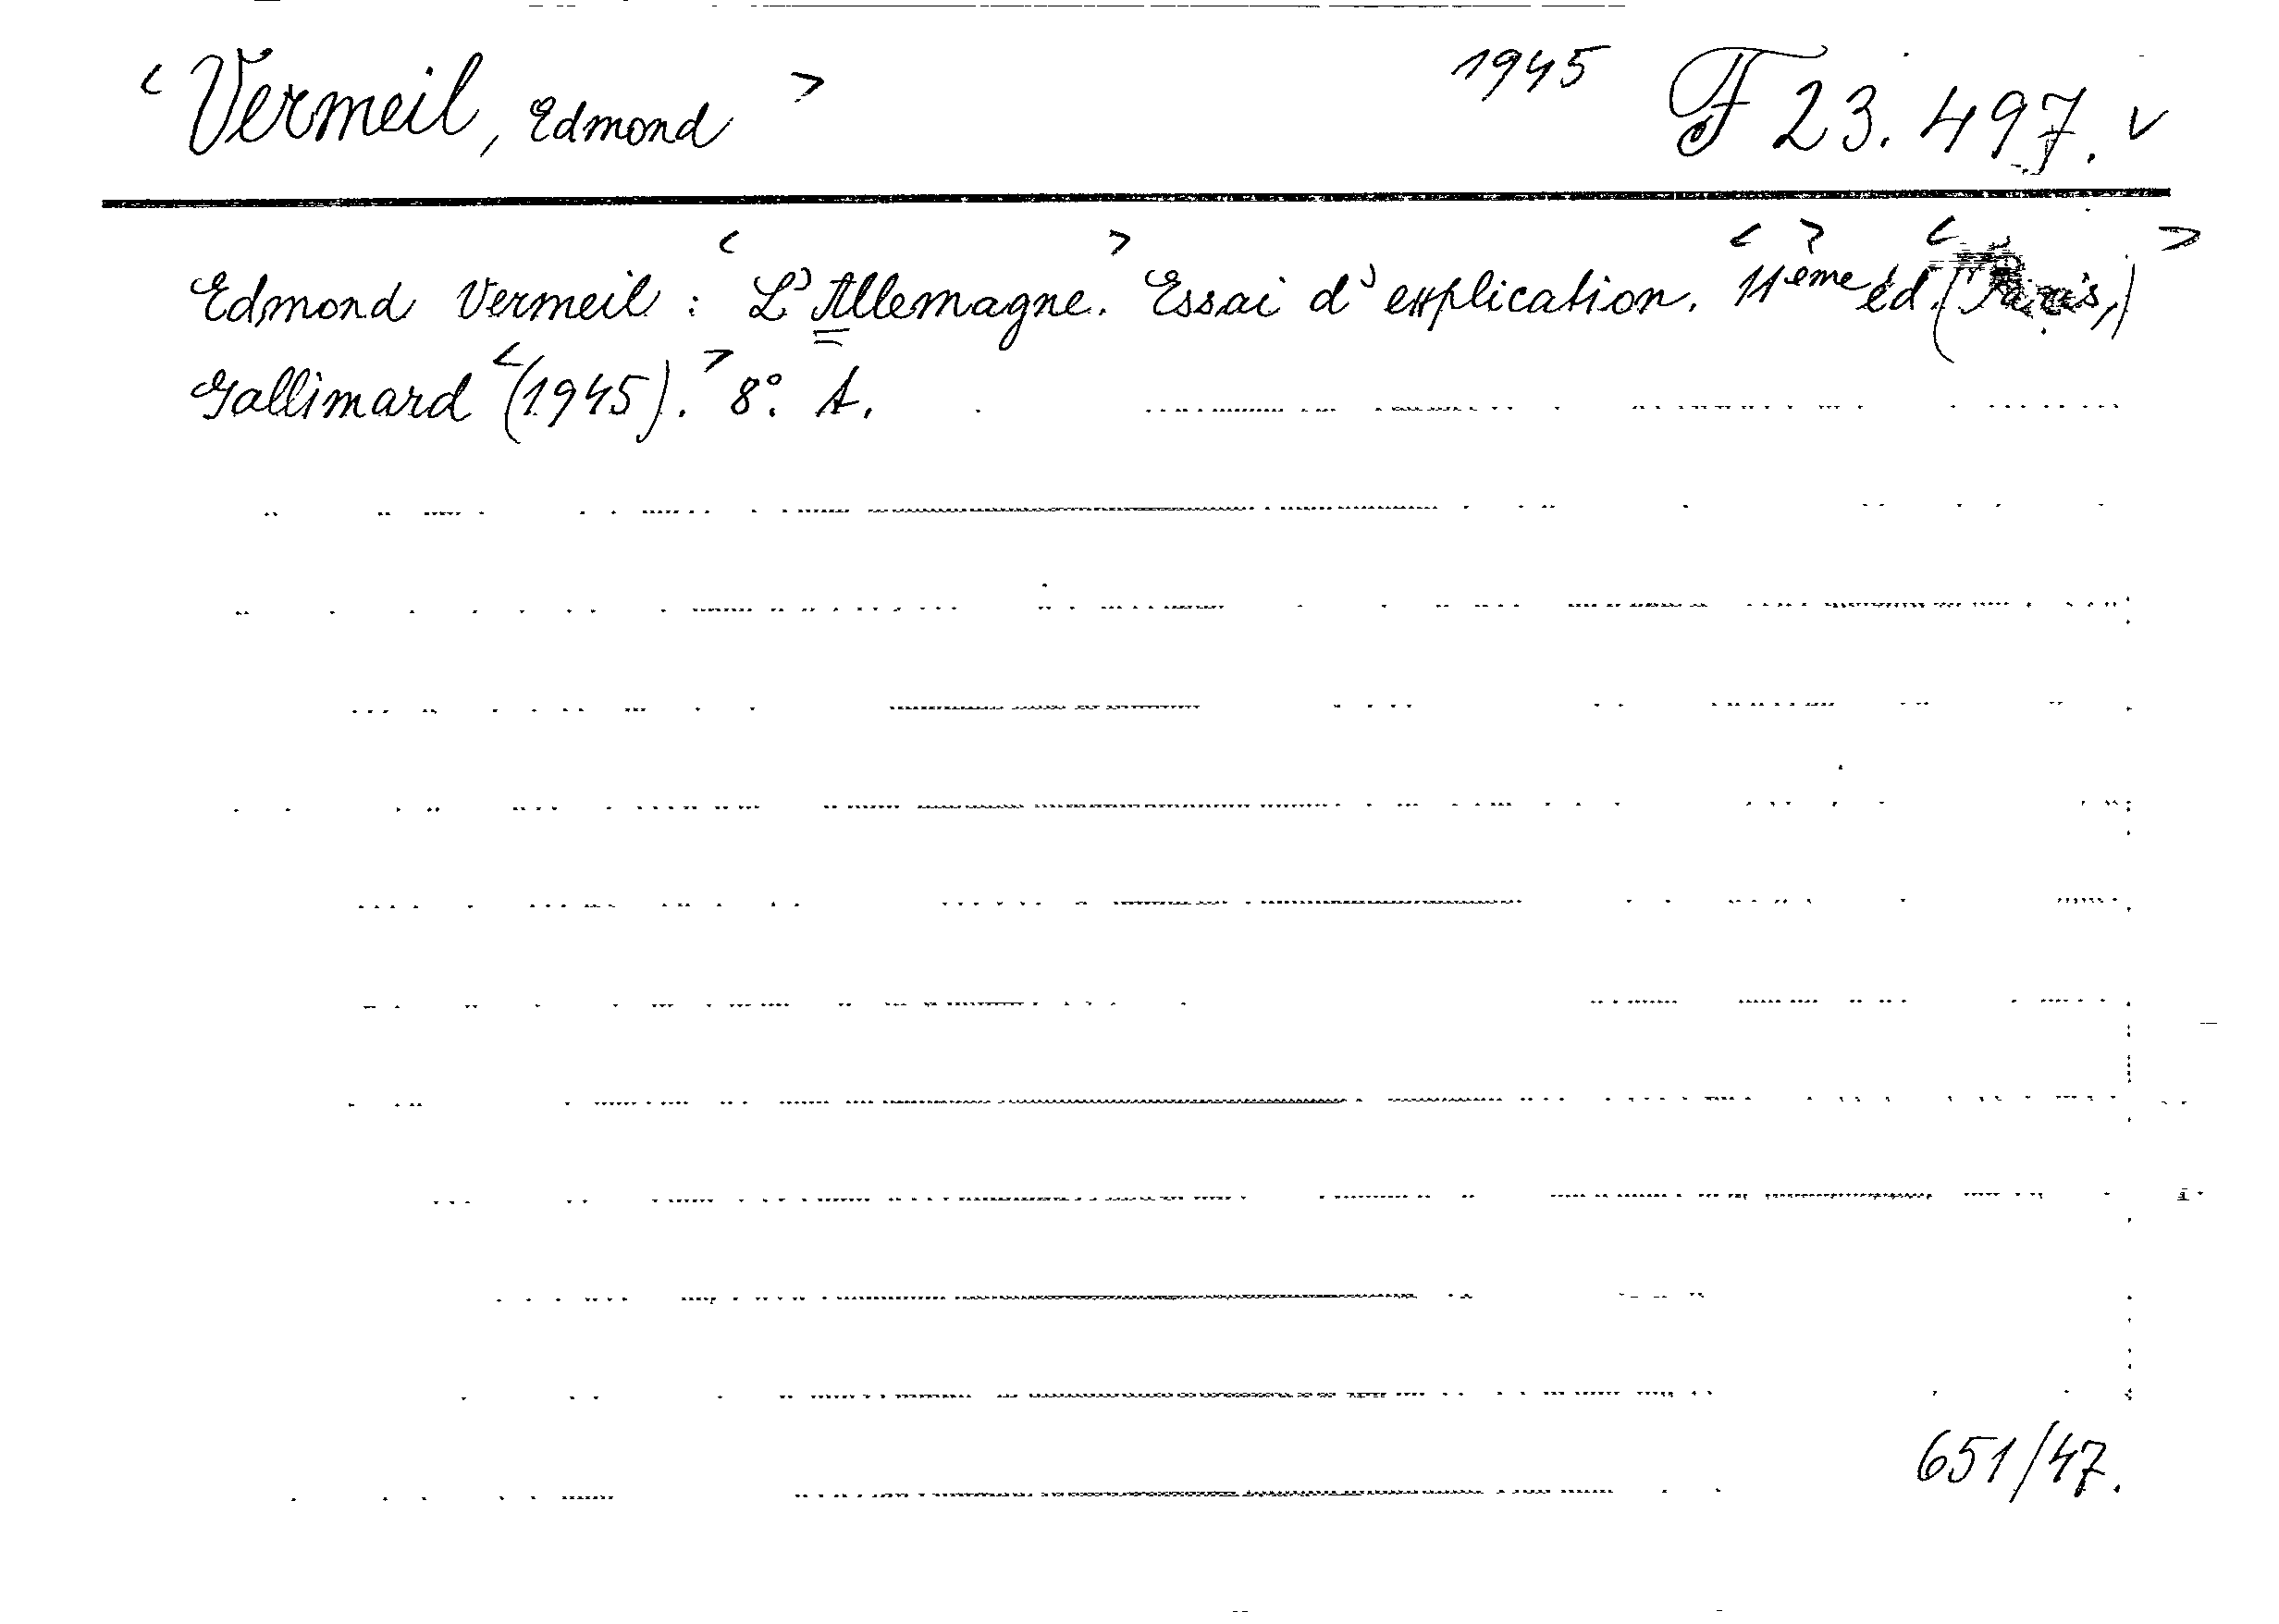 < Vermeil, Edmond > 1945 F 23.497. v
Edmond Vermeil : < L'Allemagne. > Essai d'explication. < 11ème > éd. < (Paris,) >
Gallimard < (1945). > 8°. A.
651/47.